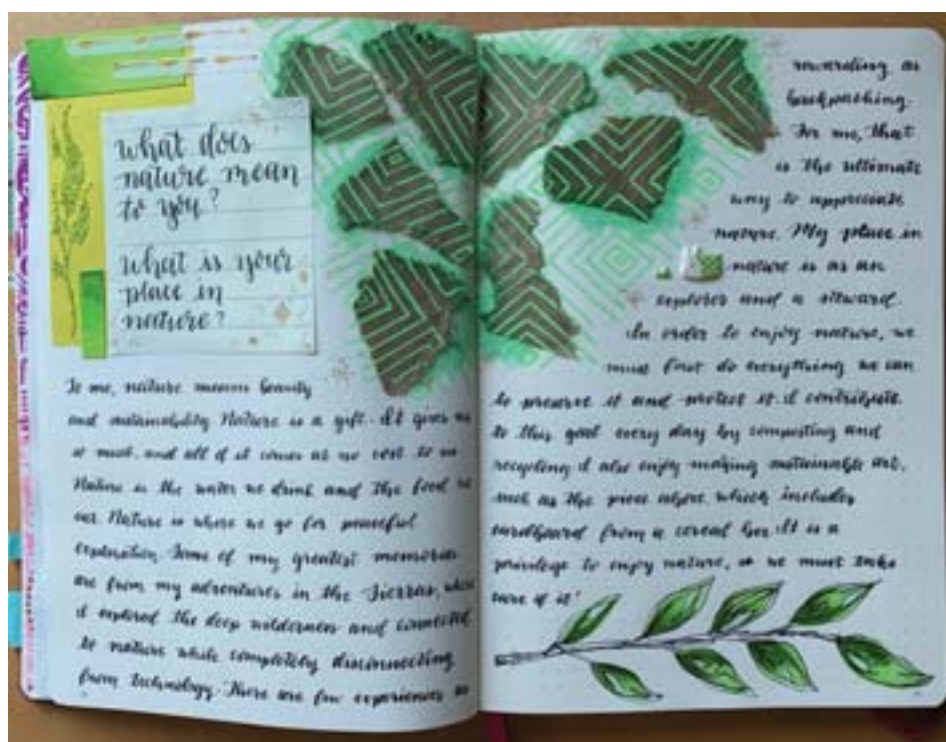 what does
nature mean
to you?
what is your
place in
nature?
To me, nature means beauty
and sustainability. Nature is a gift. It gives us
so much, and all of it comes at no cost to us.
Nature is the water we drink and the food we
eat. Nature is where we go for peaceful
exploration. Some of my greatest memories
are from my adventures in the Sierras, where
I explored the deep wilderness and connected
to nature while completely disconnecting
from technology. There are few experiences as
rewarding as
backpacking.
For me, that
is the ultimate
way to appreciate
nature. My place in
nature is as an
explorer and a steward.
In order to enjoy nature, we
must first do everything we can
to preserve it and protect it. I contribute
to this goal every day by composting and
recycling. I also enjoy making sustainable art,
such as the piece above which includes
cardboard from a cereal box. It is a
privilege to enjoy nature, so we must take
care of it!